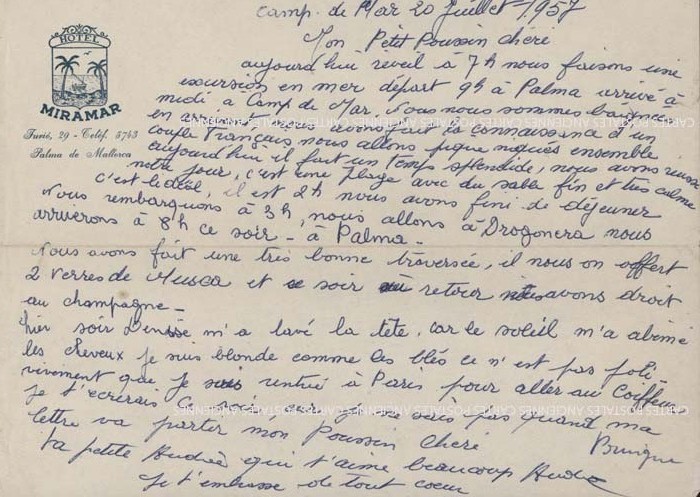 Camp. de Mar 20 Juillet 1957
Mon Petit Poussin chéri
HOTEL
MIRAMAR
29 - Teléf. 5743
Palma de Mallorca
aujourd'hui réveil à 7h nous faisons une
excursion en mer départ 9h à Palma arrivé à
midi à Camp de Mar. Nous nous sommes
en avons fait la connaissance d'un
couple Français nous allons pique niqués ensemble
aujourd'hui il fait un temps splendide, nous avons réussi
notre jour, c'est une plage avec du sable fin et très calme
c'est idéal, il est 2h nous avons fini de déjeuner
Nous rembarquons à 3h, nous allons à Dragonera nous
arriverons à 8h ce soir - à Palma -
Nous avons fait une très bonne traversée, il nous on offert
2 verres de Musca et ce soir au retour nous avons droit
au champagne -
hier soir Denise m'a lavé la tête, car le soleil m'a abimé
les cheveux je suis blonde comme les blés ce n'est pas joli
vivement que je sois rentrée à Paris pour aller au Coiffeur
je t'écrirais ce soir car je ne sais pas quand ma
lettre va partir mon Poussin chéri
ta petite qui t'aime beaucoup
Je t'embrasse de tout coeur
CARTES POSTALES ANCIENNES CARTES POSTALES ANCIENNES